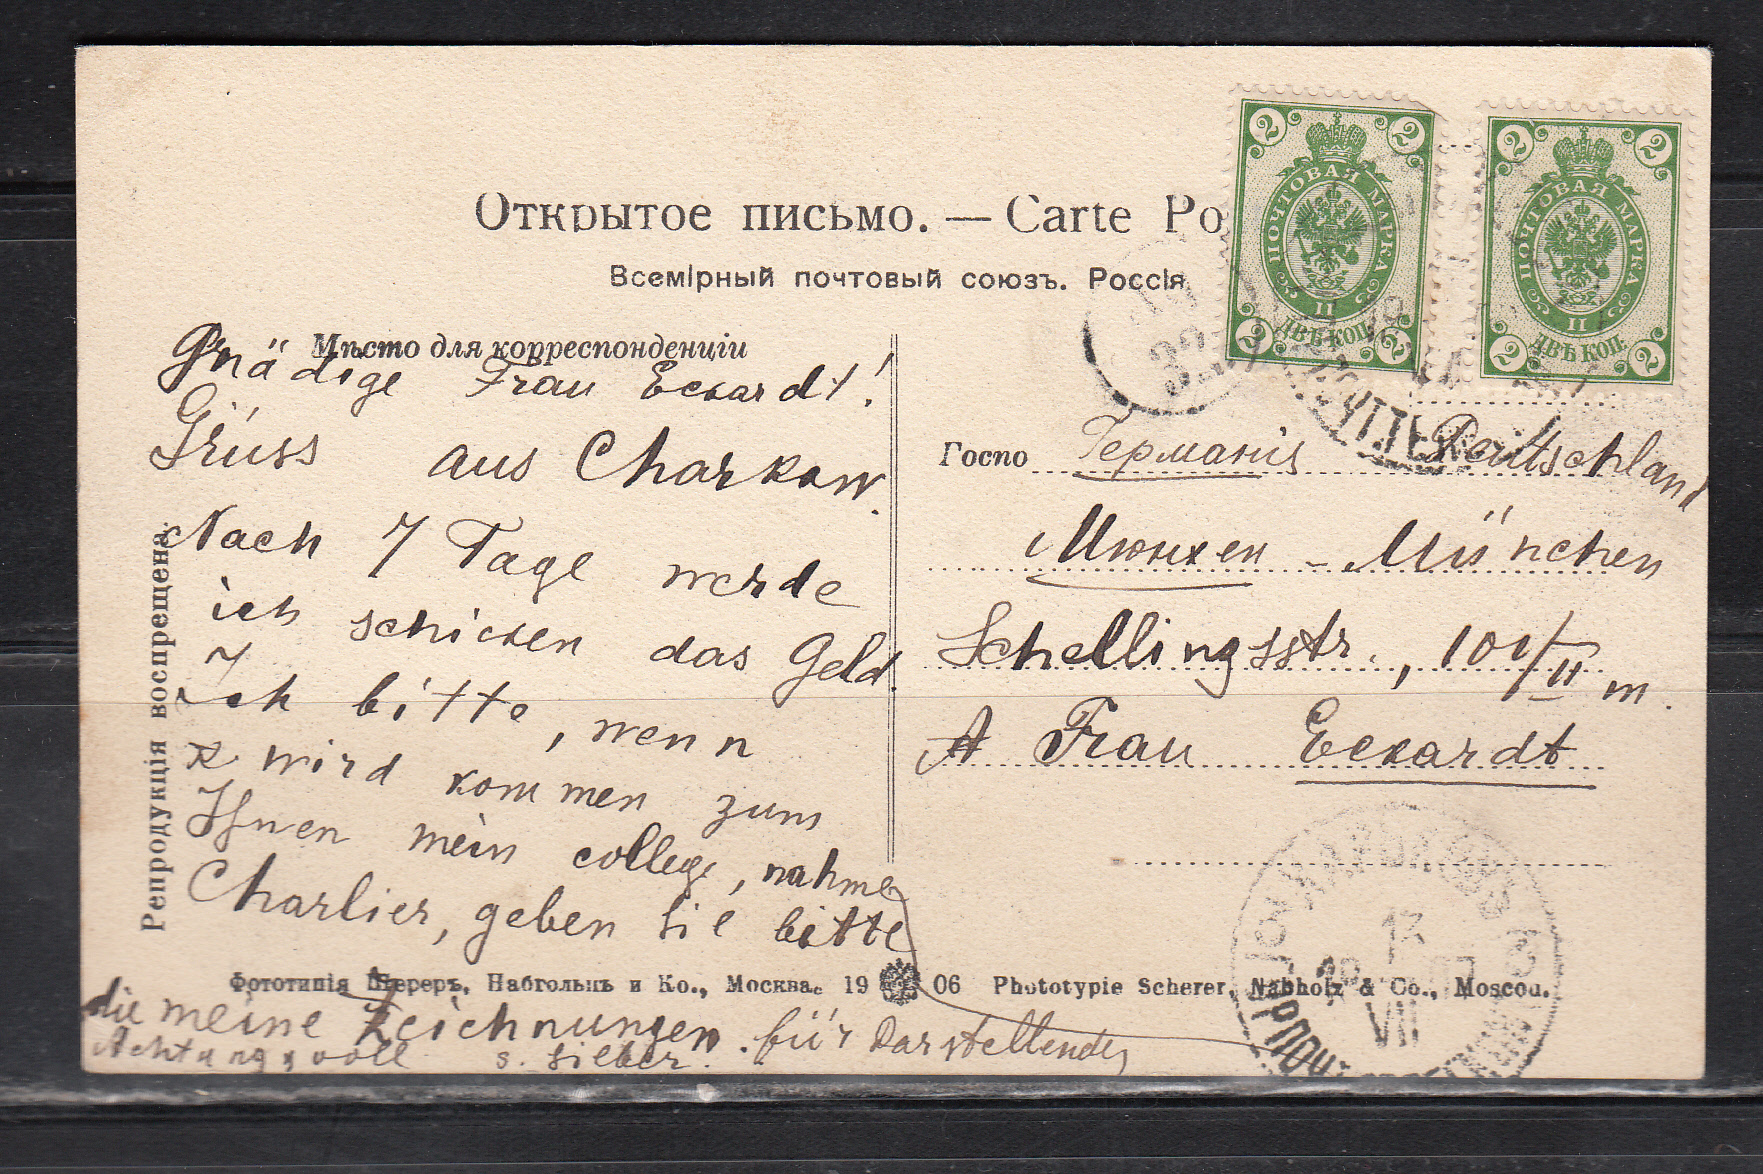 Открытое письмо. — Carte Po
Всемірный почтовый союзъ. Россія
Мѣсто для корреспонденціи
Gnädige Frau Eckardt!
Grüss aus Charkow.
Nach 7 Tage werde
ich schicken das Geld.
Ich bitte, wenn
wird kommen zum
Ihnen mein college, nahme
Charlier, geben Sie bitte
die meine Zeichnungen für Darstellender
Achtungsvoll S. Sieber.
Репродукція воспрещена.
2 2
ПОЧТОВАЯ МАРКА
II
ДВѢ КОП.
2 2
2 2
ПОЧТОВАЯ МАРКА
II
ДВѢ КОП.
2 2
Госпо Германія Deutschland
Мюнхен - München
Schellingsstr., 101/II m.
A Frau Eckardt
13
VII
Фототипія Шереръ, Набгольцъ и Ко., Москва. 19 06 Phototypie Scherer, Nabholz & Co., Moscou.